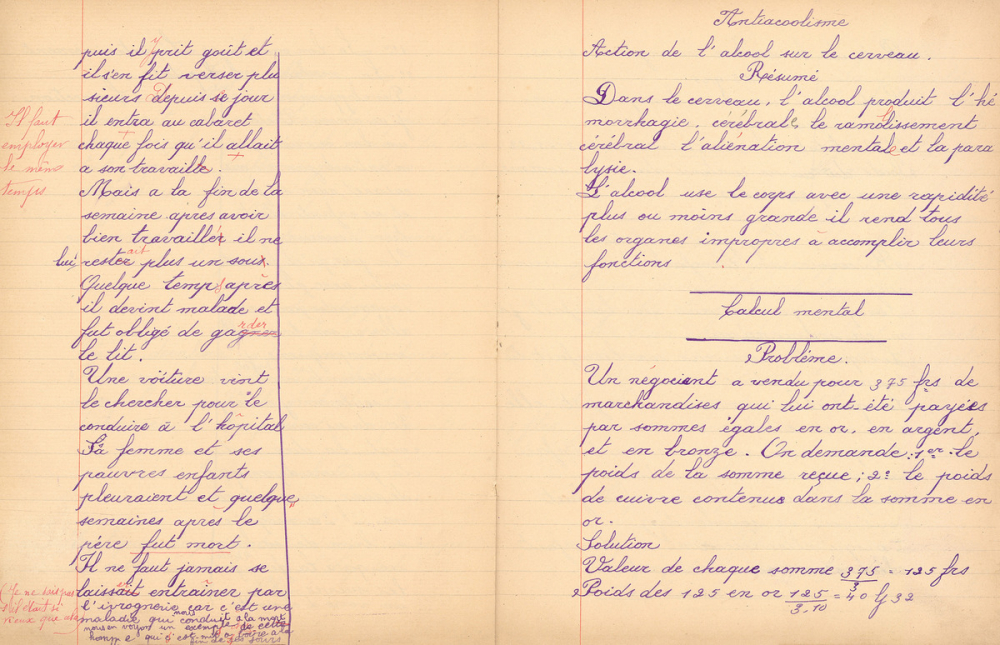 puis il y prit goût et
il s'en fit verser plu
sieurs depuis se jour
il entra au cabaret
chaque fois qu'il allait
a son travaille.
Mais a la fin de la
semaine apres avoir
bien travaillér il ne
lui restait plus un sous.
Quelque temps après
il devint malade et
fut obligé de garder
le lit.
Une voiture vint
le chercher pour le
conduire à l'hôpital
Sa femme et ses
pauvres enfants
pleuraient et quelque
semaines apres le
père fut mort.
Il ne faut jamais se
laissait entraîner par
l'ivrognerie car c'est une
maladie qui nous conduit a la mort
nous en voyon un exemple de cette
homme qui c'est mit a boire a la
fin de ses jours
Il faut
employer
le même
temps
Je ne sais pas
s'il était si
vieux que cela
Antiacoolisme
Action de l'alcool sur le cerveau.
Résumé
Dans le cerveau, l'alcool produit l'hé
morrhagie, cérébrale le ramolissement
cérébral l'aliénation mentale et la para
lysie.
L'alcool use le corps avec une rapidité
plus ou moins grande il rend tous
les organes impropres à accomplir leurs
fonctions
Calcul mental
Problème.
Un négociant a vendu pour 375 frs de
marchandises qui lui ont été payées
par sommes égales en or, en argent,
et en bronze. On demande: 1er le
poids de la somme reçue; 2º le poids
de cuivre contenus dans la somme en
or.
Solution
Valeur de chaque somme 375/3 = 125 frs
Poids des 125 en or 125/3.10 = 40 g 32